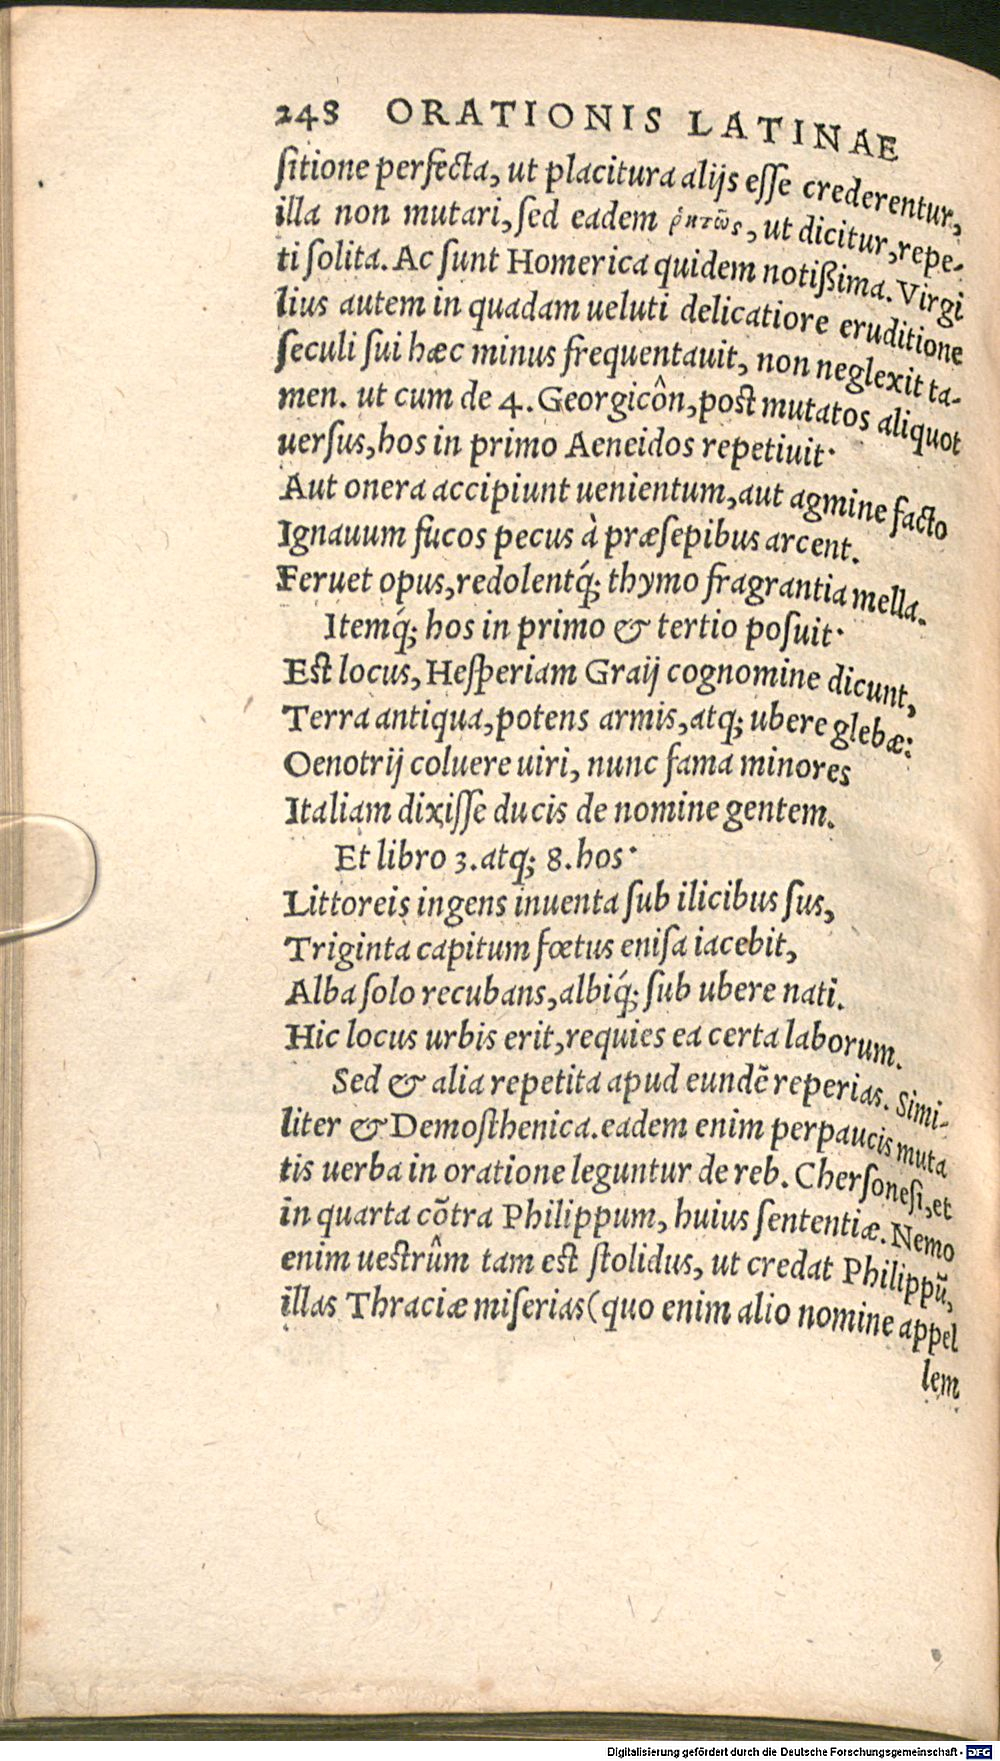 248 ORATIONIS LATINAE
ſitione perfecta, ut placitura alijs eſſe crederentur,
illa non mutari, ſed eadem ῥητῶς, ut dicitur, repe-
ti ſolita. Ac ſunt Homerica quidem notißima. Virgi
lius autem in quadam ueluti delicatiore eruditione
ſeculi ſui hæc minus frequentauit, non neglexit ta-
men. ut cum de 4. Georgicôn, post mutatos aliquot
uerſus, hos in primo Aeneidos repetiuit·
Aut onera accipiunt uenientum, aut agmine facto
Ignauum fucos pecus à præſepibus arcent.
Feruet opus, redolentq́; thymo fragrantia mella.
Itemq́; hos in primo & tertio poſuit·
Est locus, Heſperiam Graij cognomine dicunt,
Terra antiqua, potens armis, atq; ubere glebæ:
Oenotrij coluere uiri, nunc fama minores
Italiam dixiſſe ducis de nomine gentem.
Et libro 3. atq; 8. hos·
Littoreis ingens inuenta ſub ilicibus ſus,
Triginta capitum fœtus eniſa iacebit,
Alba ſolo recubans, albiq́; ſub ubere nati.
Hic locus urbis erit, requies ea certa laborum.
Sed & alia repetita apud eundē reperias. Simi-
liter & Demoſthenica. eadem enim perpaucis muta
tis uerba in oratione leguntur de reb. Cherſoneſi, et
in quarta cōtra Philippum, huius ſententiæ. Nemo
enim uestrûm tam est ſtolidus, ut credat Philippū,
illas Thraciæ miſerias (quo enim alio nomine appel
lem
Digitalisierung gefördert durch die Deutsche Forschungsgemeinschaft - DFG